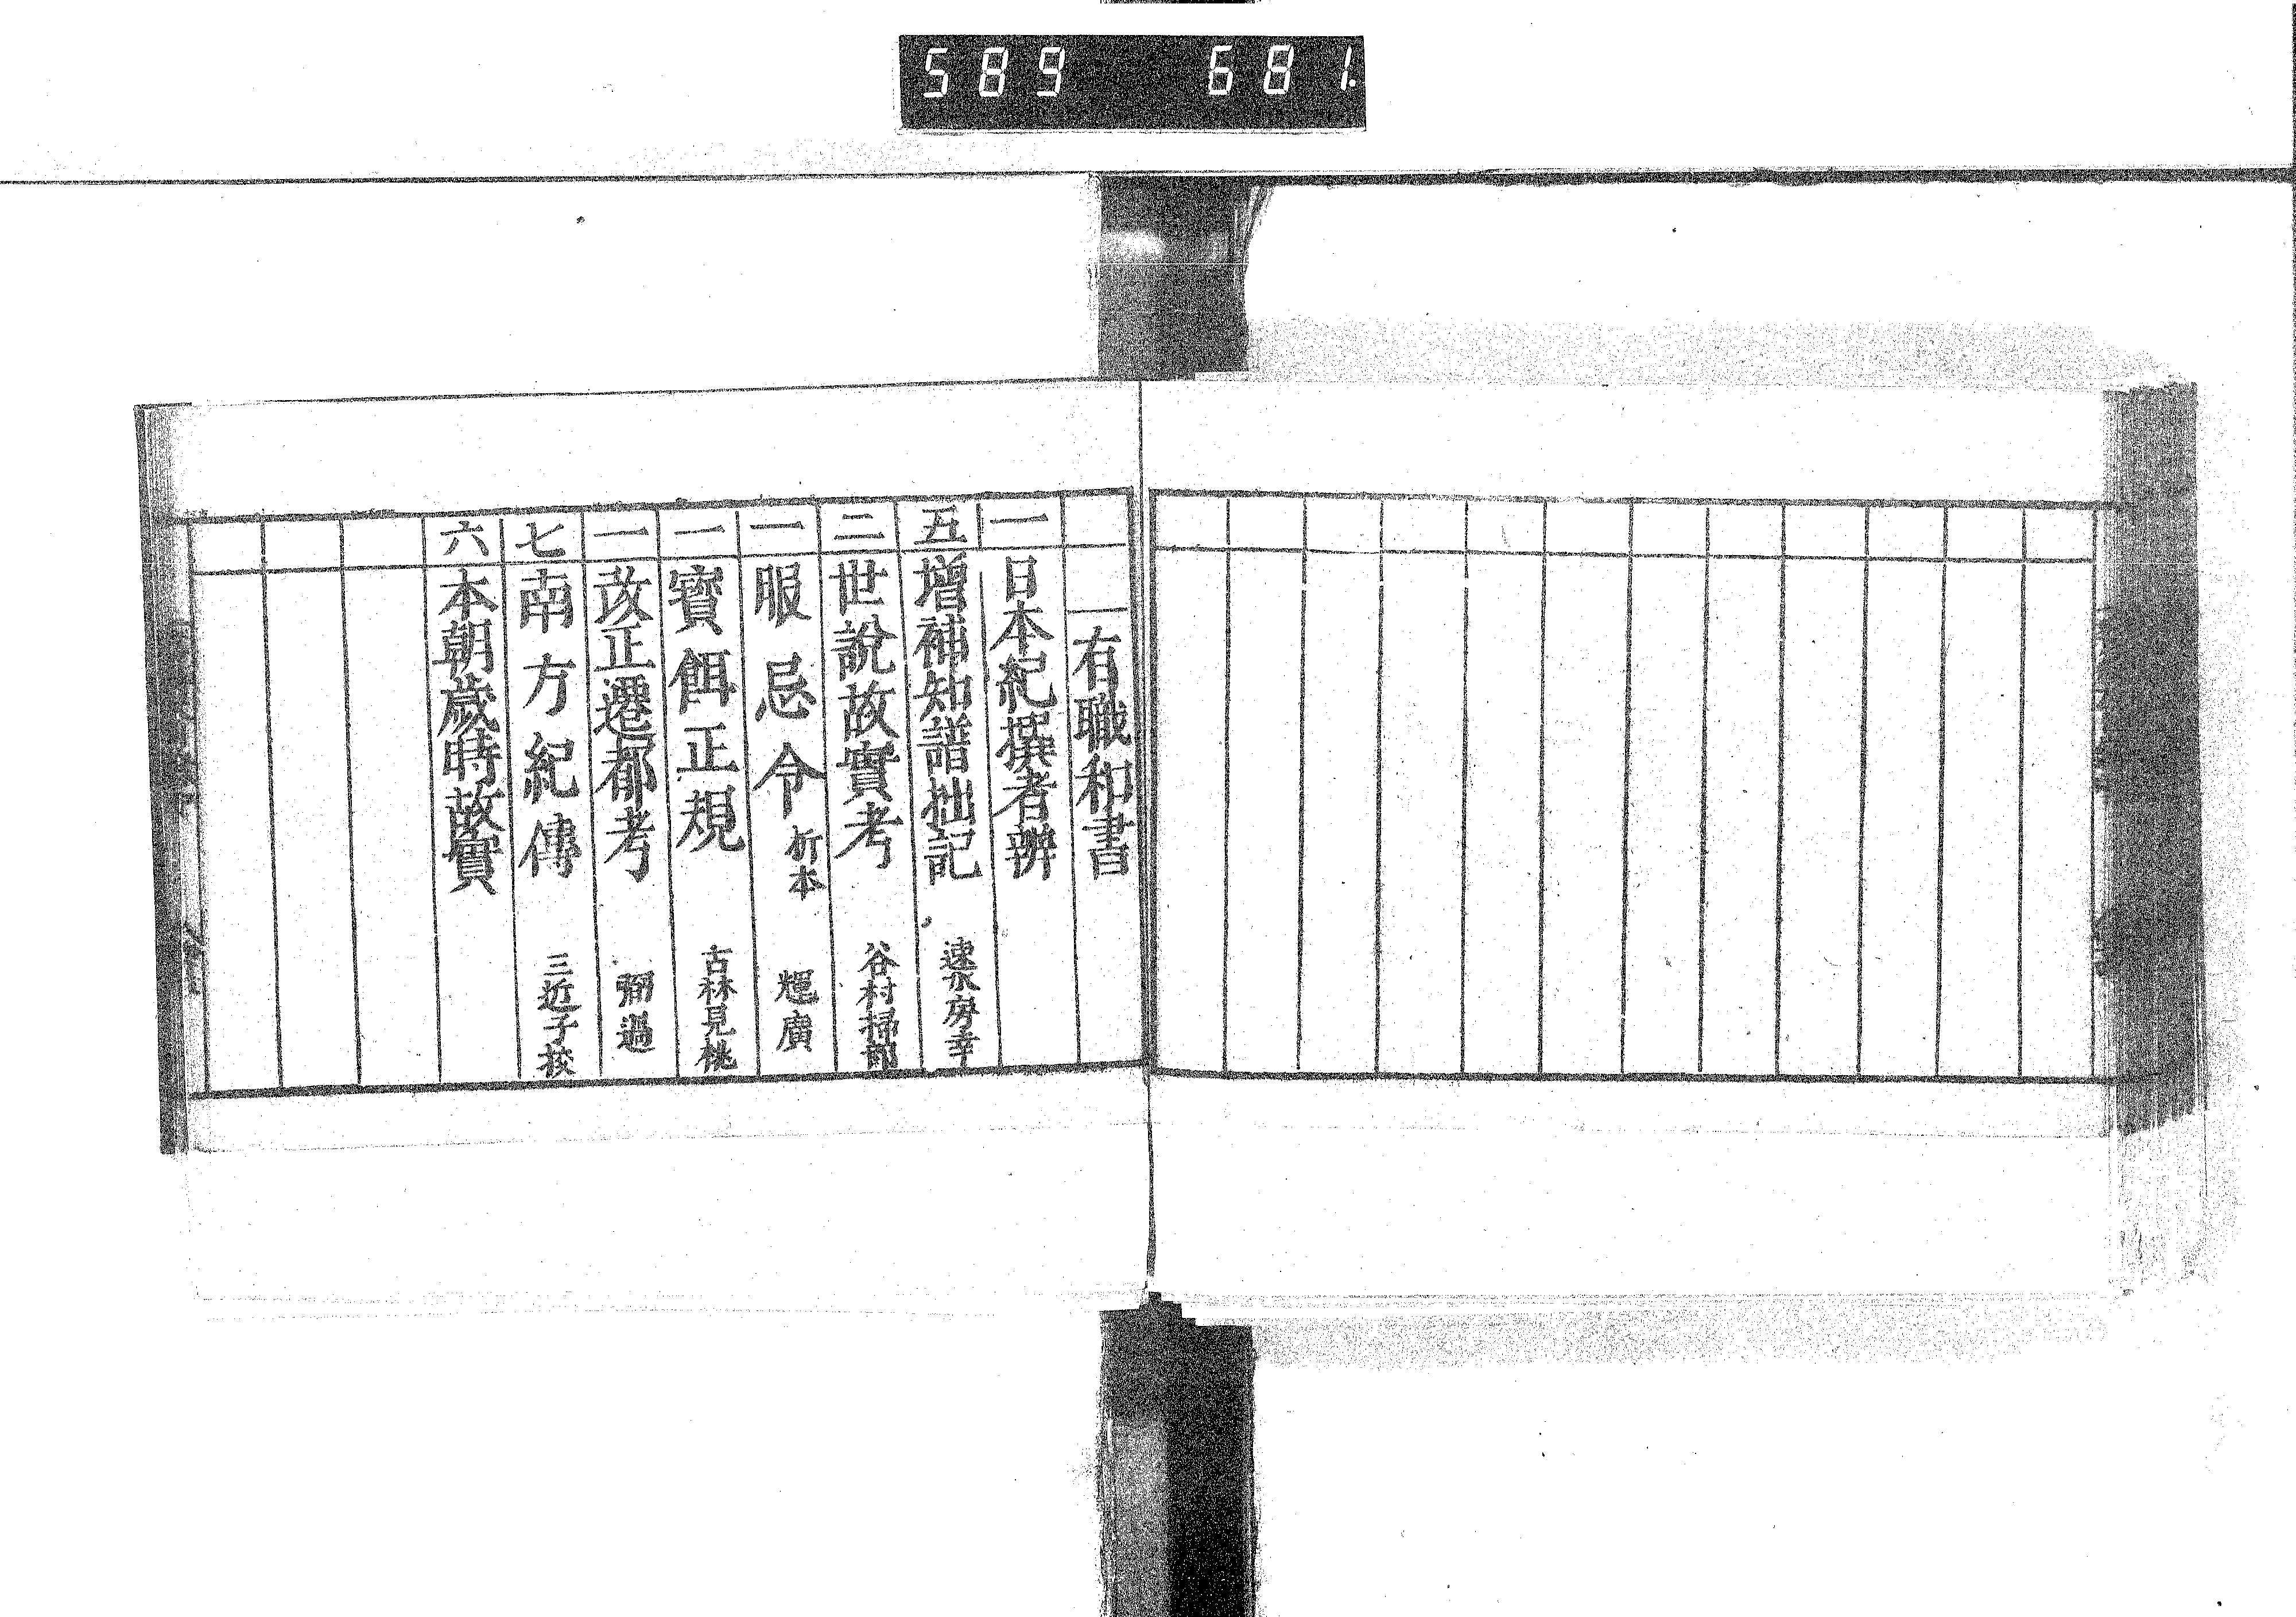 589 681.
一有職和書
一 日本紀撰者辨
五 增補知譜拙記 速水房幸
三 世說故實考 谷村掃部
一 服忌令 折本 輝廣
一 寶餌正規 古林見桃
一 改正遷都考 彌過
七 南方紀傳 三近子校
六 本朝歲時故實